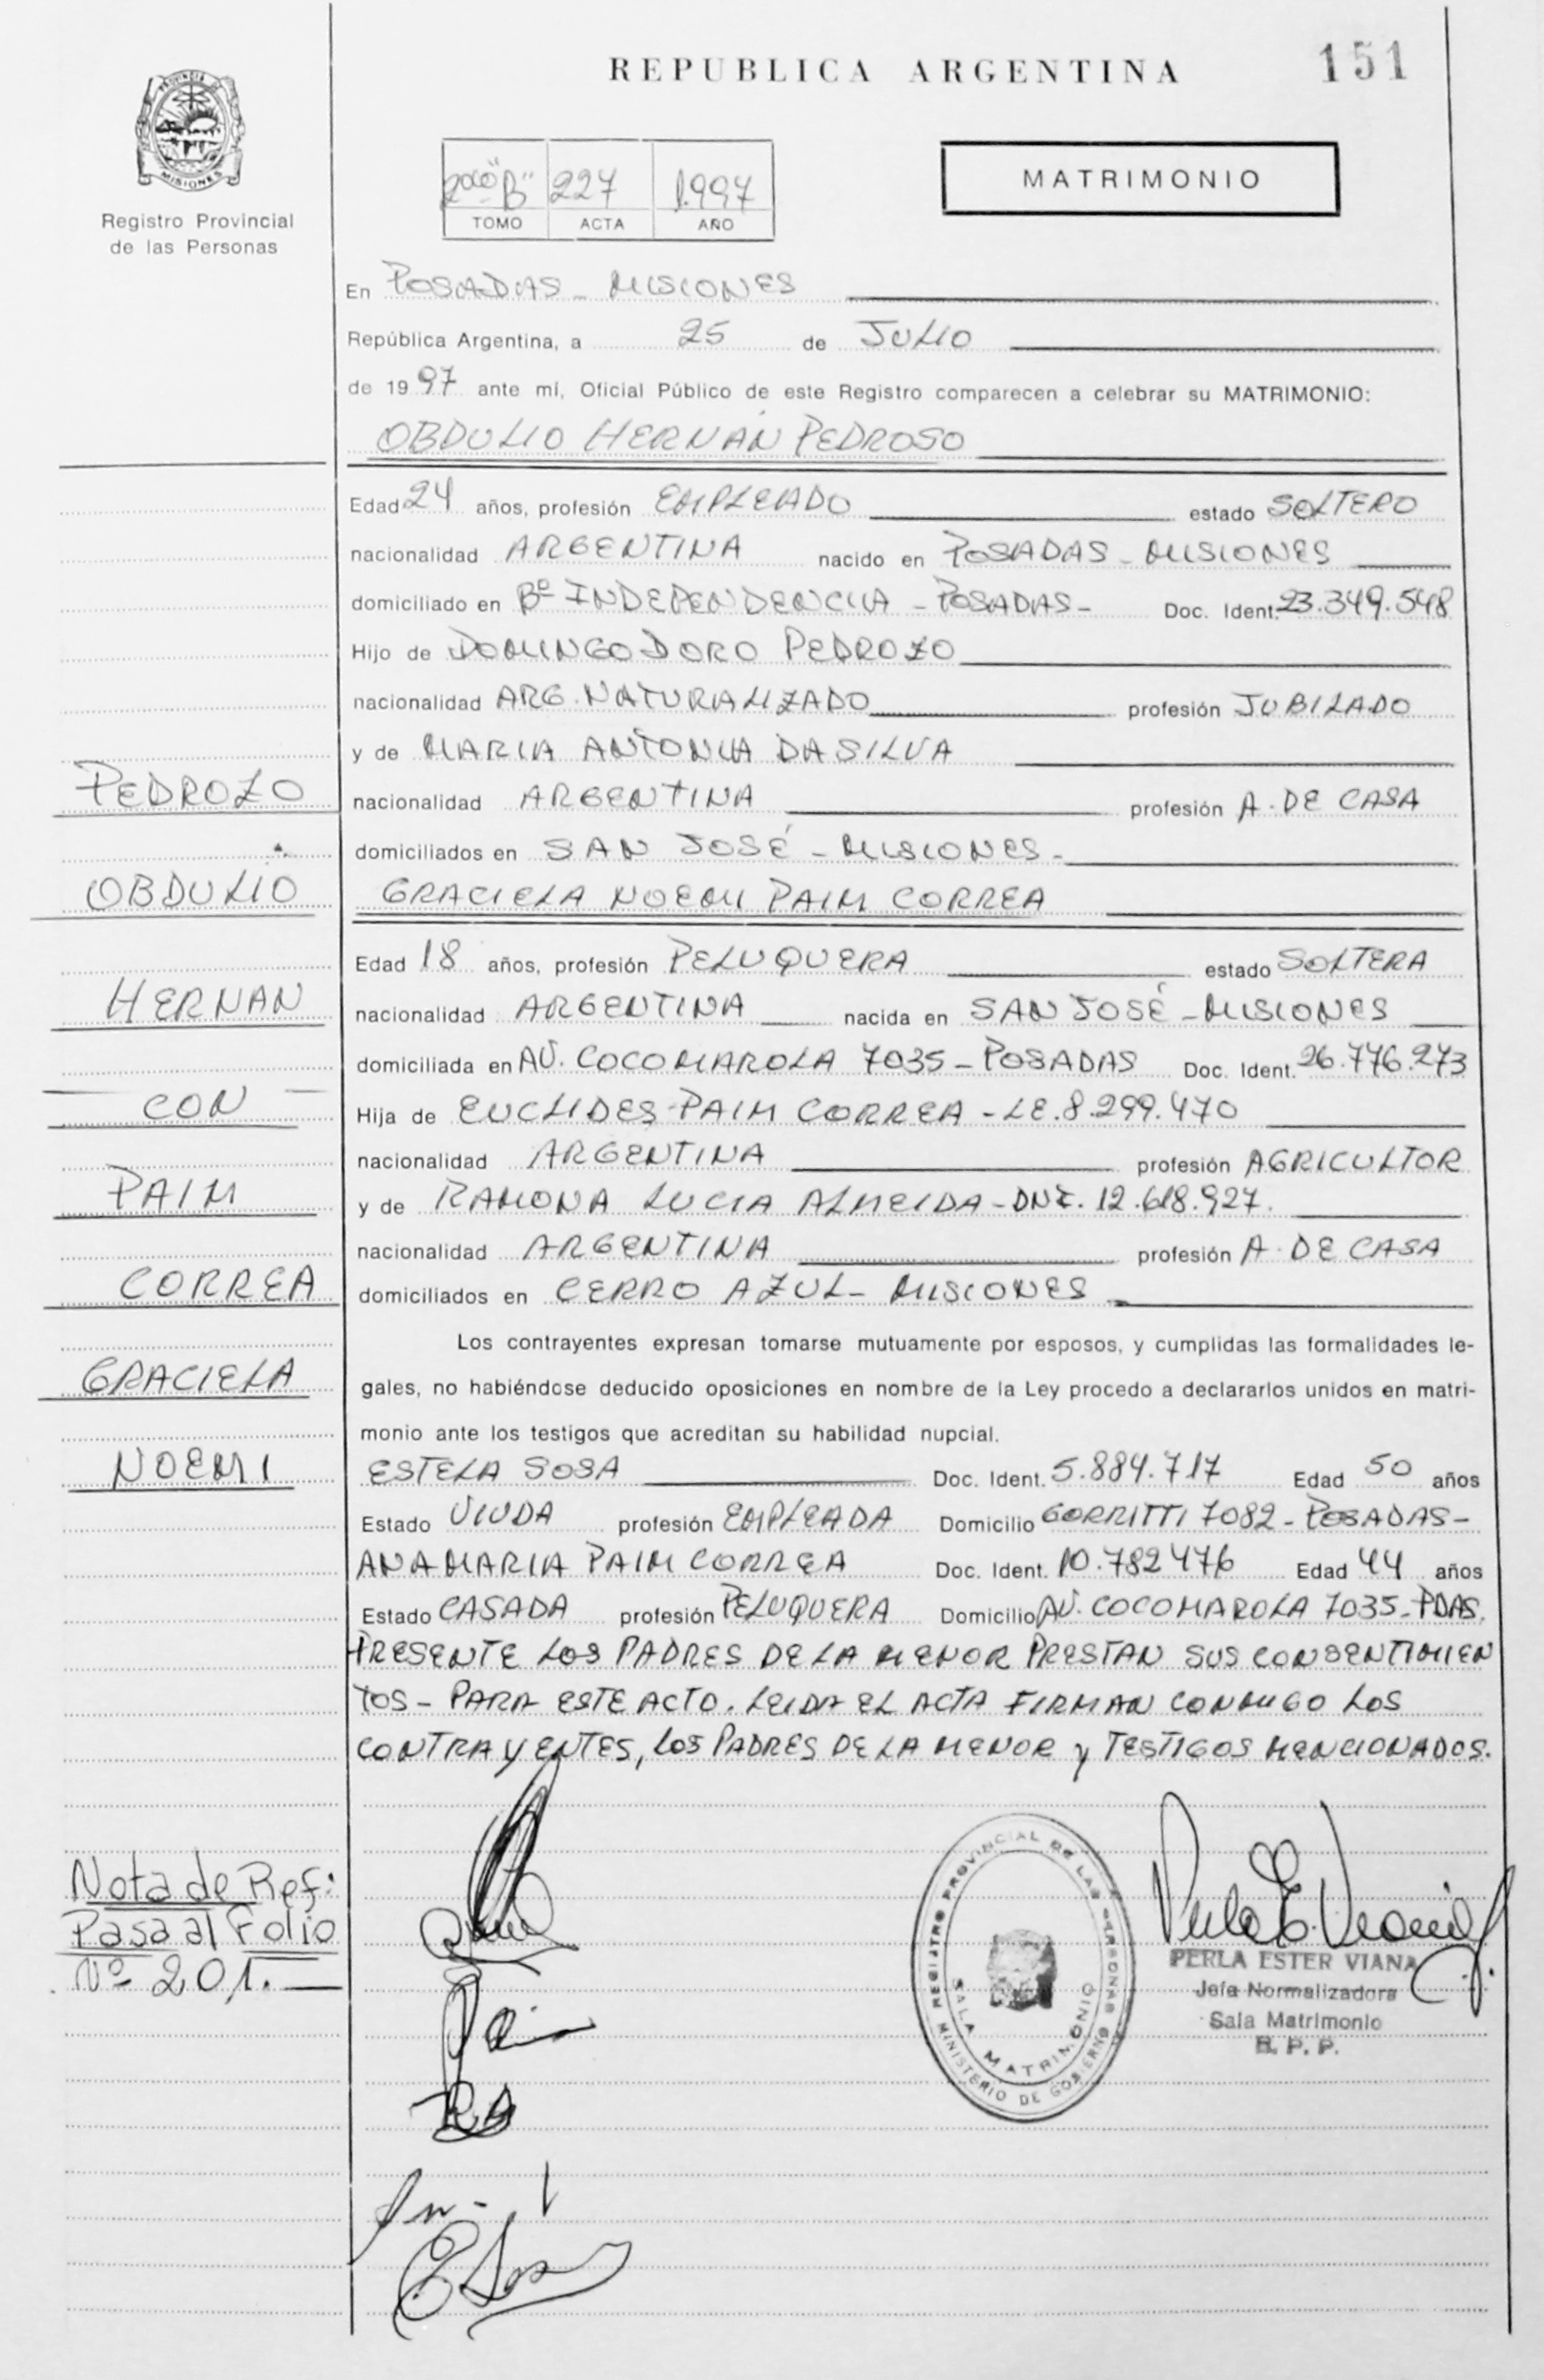 REPUBLICA ARGENTINA
151
PROVINCIA
MISIONES
Registro Provincial
de las Personas
2do "B" 227 1.997
TOMO ACTA AÑO
MATRIMONIO
En POSADAS - MISIONES
República Argentina, a 25 de JULIO
de 1997 ante mí, Oficial Público de este Registro comparecen a celebrar su MATRIMONIO:
OBDULIO HERNAN PEDROSO
Edad 24 años, profesión EMPLEADO estado SOLTERO
nacionalidad ARGENTINA nacido en POSADAS - MISIONES
domiciliado en Bº INDEPENDENCIA - POSADAS - Doc. Ident. 23.349.548
Hijo de DOMINGO DORO PEDROZO
nacionalidad ARG. NATURALIZADO profesión JUBILADO
y de MARIA ANTONIA DASILVA
nacionalidad ARGENTINA profesión A. DE CASA
domiciliados en SAN JOSÉ - MISIONES -
GRACIELA NOEMI PAIM CORREA
Edad 18 años, profesión PELUQUERA estado SOLTERA
nacionalidad ARGENTINA nacida en SAN JOSÉ - MISIONES
domiciliada en AV. COCOMAROLA 7035 - POSADAS Doc. Ident. 26.776.273
Hija de EUCLIDES PAIM CORREA - LE. 8.299.470
nacionalidad ARGENTINA profesión AGRICULTOR
y de RAMONA LUCIA ALMEIDA - DNI. 12.618.927.
nacionalidad ARGENTINA profesión A. DE CASA
domiciliados en CERRO AZUL - MISIONES
Los contrayentes expresan tomarse mutuamente por esposos, y cumplidas las formalidades le-
gales, no habiéndose deducido oposiciones en nombre de la Ley procedo a declararlos unidos en matri-
monio ante los testigos que acreditan su habilidad nupcial.
ESTELA SOSA Doc. Ident. 5.884.717 Edad 50 años
Estado VIUDA profesión EMPLEADA Domicilio GORRITTI 7082 - POSADAS -
ANA MARIA PAIM CORREA Doc. Ident. 10.782476 Edad 44 años
Estado CASADA profesión PELUQUERA Domicilio AV. COCOMAROLA 7035 - PDAS.
PRESENTE LOS PADRES DE LA MENOR PRESTAN SUS CONSENTIMIEN
TOS - PARA ESTE ACTO. LEIDA EL ACTA FIRMAN CONMIGO LOS
CONTRAYENTES, LOS PADRES DE LA MENOR y TESTIGOS MENCIONADOS.
PEDROZO
OBDULIO
HERNAN
CON
PAIM
CORREA
GRACIELA
NOEMI
Nota de Ref:
Pasa al Folio
Nº 201.
REGISTRO PROVINCIAL DE LAS PERSONAS
MINISTERIO DE GOBIERNO
SALA MATRIMONIO
PERLA ESTER VIANA
Jefa Normalizadora
Sala Matrimonio
R. P. P.